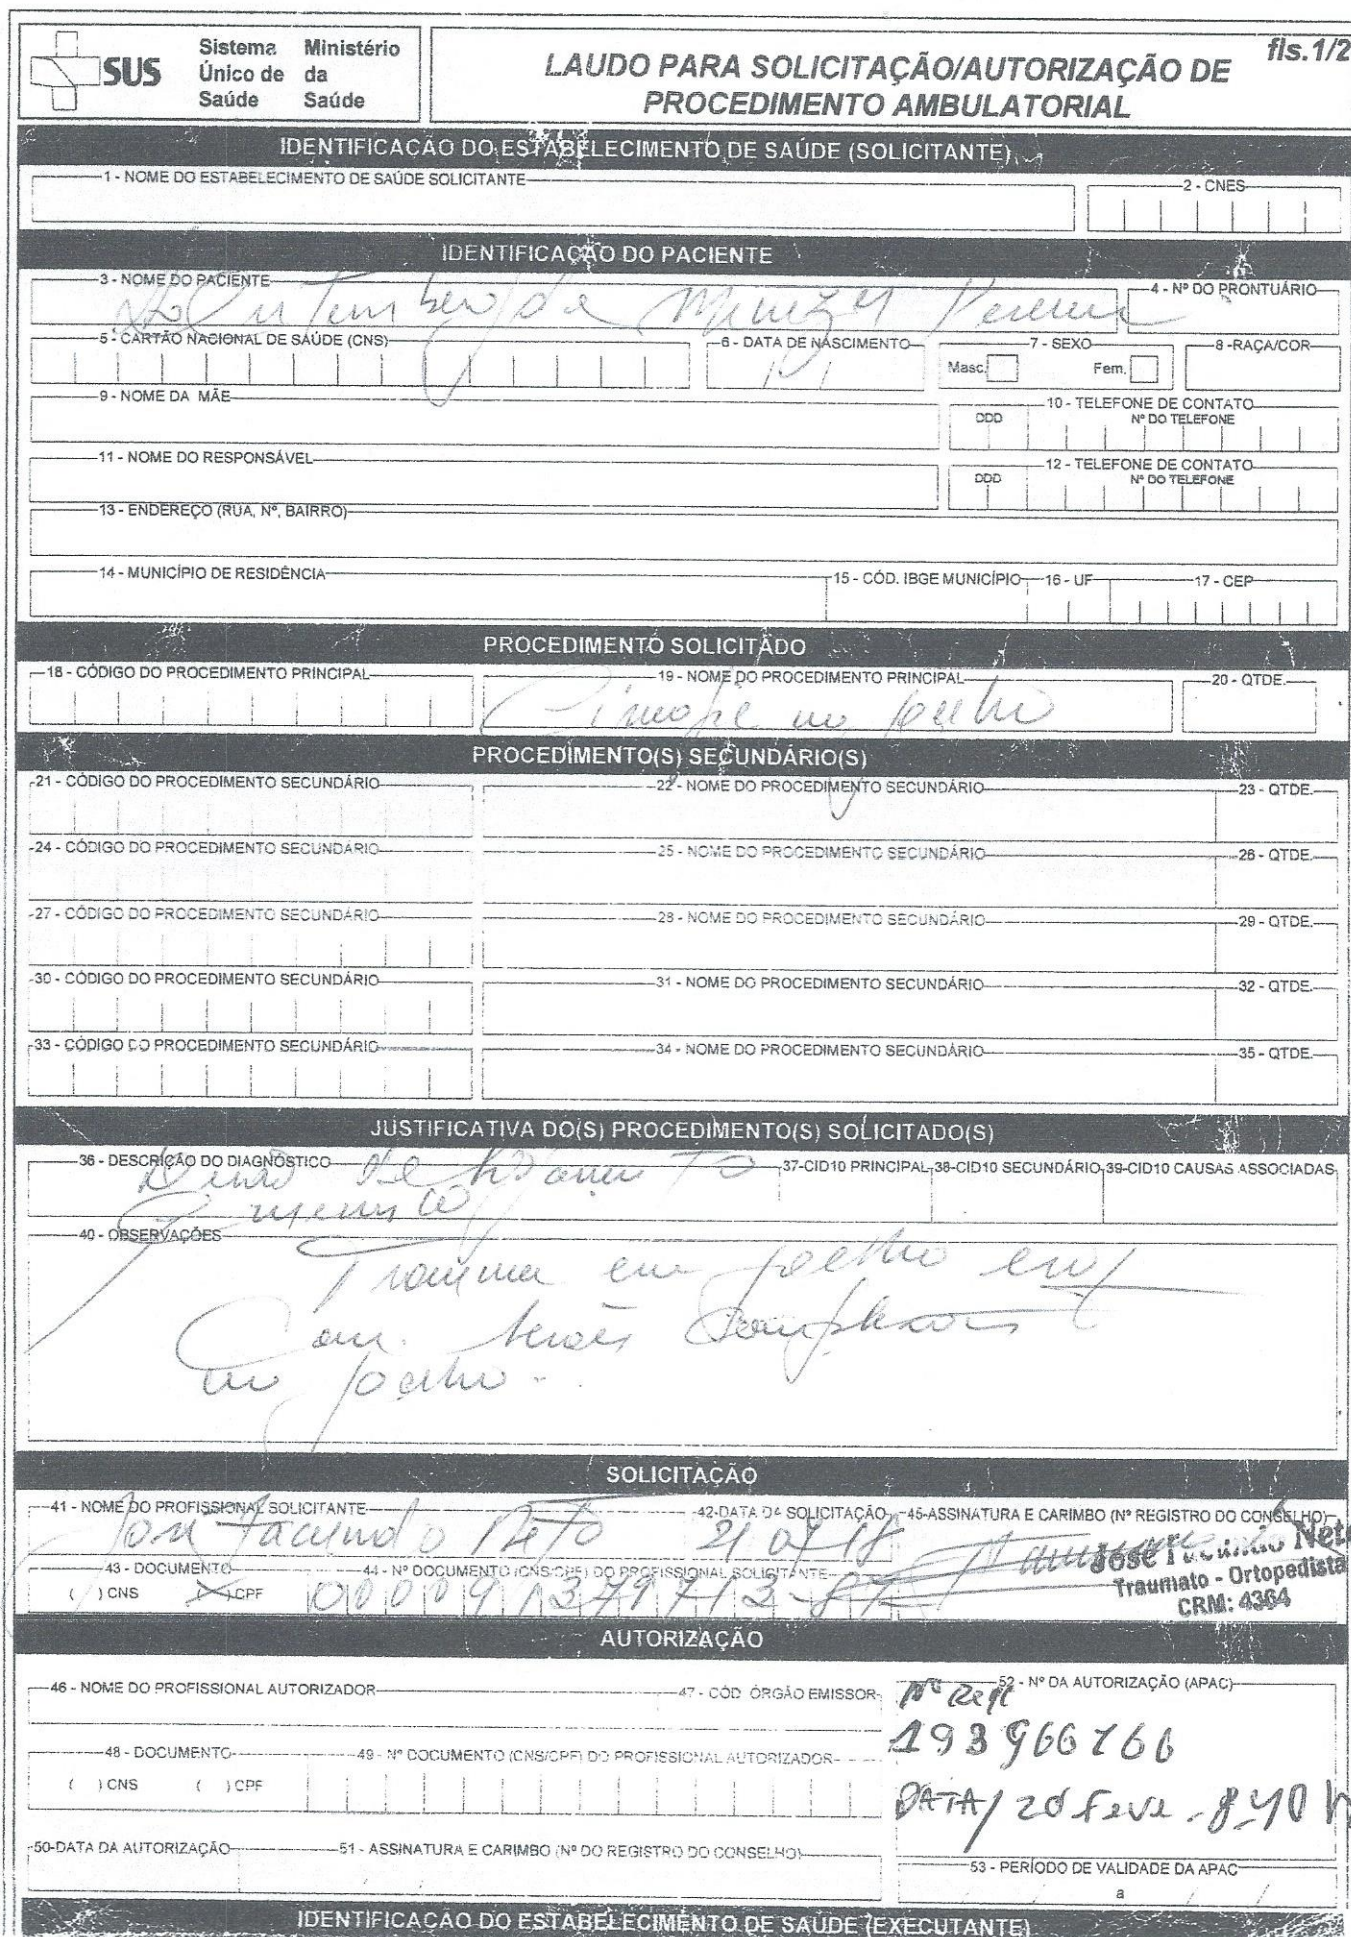 fls.1/2
SUS Sistema Único de Saúde Ministério da Saúde
LAUDO PARA SOLICITAÇÃO/AUTORIZAÇÃO DE
PROCEDIMENTO AMBULATORIAL
IDENTIFICAÇÃO DO ESTABELECIMENTO DE SAÚDE (SOLICITANTE)
1 - NOME DO ESTABELECIMENTO DE SAÚDE SOLICITANTE 2 - CNES
IDENTIFICAÇÃO DO PACIENTE
3 - NOME DO PACIENTE 4 - Nº DO PRONTUÁRIO
da
5 - CARTÃO NACIONAL DE SAÚDE (CNS) 6 - DATA DE NASCIMENTO 7 - SEXO 8 - RAÇA/COR
Masc. Fem.
9 - NOME DA MÃE 10 - TELEFONE DE CONTATO
DDD Nº DO TELEFONE
11 - NOME DO RESPONSÁVEL 12 - TELEFONE DE CONTATO
DDD Nº DO TELEFONE
13 - ENDEREÇO (RUA, Nº, BAIRRO)
14 - MUNICÍPIO DE RESIDÊNCIA 15 - CÓD. IBGE MUNICÍPIO 16 - UF 17 - CEP
PROCEDIMENTO SOLICITADO
18 - CÓDIGO DO PROCEDIMENTO PRINCIPAL 19 - NOME DO PROCEDIMENTO PRINCIPAL 20 - QTDE.
joelho
PROCEDIMENTO(S) SECUNDÁRIO(S)
21 - CÓDIGO DO PROCEDIMENTO SECUNDÁRIO 22 - NOME DO PROCEDIMENTO SECUNDÁRIO 23 - QTDE.
24 - CÓDIGO DO PROCEDIMENTO SECUNDÁRIO 25 - NOME DO PROCEDIMENTO SECUNDÁRIO 26 - QTDE.
27 - CÓDIGO DO PROCEDIMENTO SECUNDÁRIO 28 - NOME DO PROCEDIMENTO SECUNDÁRIO 29 - QTDE.
30 - CÓDIGO DO PROCEDIMENTO SECUNDÁRIO 31 - NOME DO PROCEDIMENTO SECUNDÁRIO 32 - QTDE.
33 - CÓDIGO DO PROCEDIMENTO SECUNDÁRIO 34 - NOME DO PROCEDIMENTO SECUNDÁRIO 35 - QTDE.
JUSTIFICATIVA DO(S) PROCEDIMENTO(S) SOLICITADO(S)
36 - DESCRIÇÃO DO DIAGNÓSTICO 37-CID10 PRINCIPAL 38-CID10 SECUNDÁRIO 39-CID10 CAUSAS ASSOCIADAS
de
40 - OBSERVAÇÕES
Trauma em joelho
Com
no joelho
SOLICITAÇÃO
41 - NOME DO PROFISSIONAL SOLICITANTE 42-DATA DA SOLICITAÇÃO 45-ASSINATURA E CARIMBO (Nº REGISTRO DO CONSELHO)
José Facundo Neto
José Facundo Neto
Traumato - Ortopedista
CRM: 4364
43 - DOCUMENTO 44 - Nº DOCUMENTO (CNS/CPF) DO PROFISSIONAL SOLICITANTE
( ) CNS (X) CPF
AUTORIZAÇÃO
46 - NOME DO PROFISSIONAL AUTORIZADOR 47 - CÓD. ÓRGÃO EMISSOR 52 - Nº DA AUTORIZAÇÃO (APAC)
193966766
48 - DOCUMENTO 49 - Nº DOCUMENTO (CNS/CPF) DO PROFISSIONAL AUTORIZADOR
( ) CNS ( ) CPF
DATA/ 20 Feve
50-DATA DA AUTORIZAÇÃO 51 - ASSINATURA E CARIMBO (Nº DO REGISTRO DO CONSELHO)
53 - PERÍODO DE VALIDADE DA APAC
a
IDENTIFICAÇÃO DO ESTABELECIMENTO DE SAÚDE (EXECUTANTE)